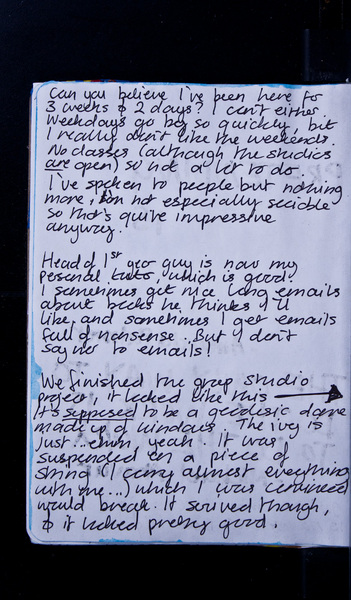 Can you believe I've been here for
3 weeks & 2 days? I can't either.
Weekdays go by so quickly, but
I really don't like the weekends.
No classes (although the studios
are open) so not a lot to do.
I've spoken to people but nothing
more, I'm not especially sociable
so that's quite impressive
anyway.
Head of 1st year guy is now my
personal tutor, which is good.
I sometimes get nice long emails
about books he thinks I'll
like and sometimes I get emails
full of nonsense. But I don't
say no to emails!
We finished the group studio
project, it looked like this
It's supposed to be a geodesic dome
made up of windows. The ivy is
just... ehm, yeah. It was
suspended on a piece of
string (I carry almost everything
with me...) which I was convinced
would break. It survived though,
& it looked pretty good.